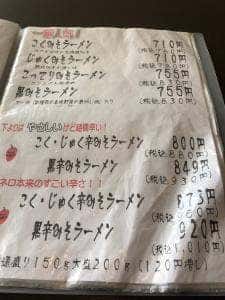 こくみそラーメン 710円
じゅくみそラーメン 710円
こってりみそラーメン 755円
(税込830円)
黒みそラーメン 755円
(税込830円)
下よりは やさしいけど結構辛い！
こく・じゅく辛みそラーメン 800円
(税込880円)
黒辛みそラーメン 849円
ネロ本来のすごい辛さ！！
こく・じゅく辛みそラーメン 873円
黒辛みそラーメン 920円
(税込1,010円)
150g大盛200g(120円増し)